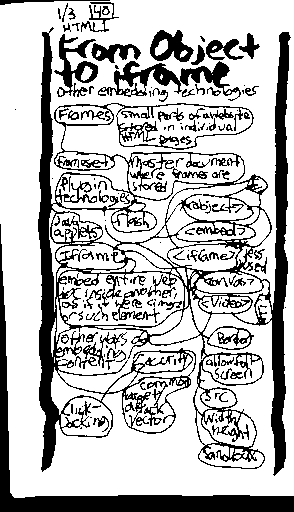 1/3 140
HTML
From Object
to iframe
Other embedding technologies
Frames
small parts of website
stored in individual
HTML pages
Frameset
Master document
where frames are
stored
Plugin
technologies
Java
applets
Flash
<object>
<embed>
Iframe
<iframe>
less
used
embed entire web
doc inside another,
as if it were <img>
or such element
<canvas>
<video>
other ways of
embedding
content
Security
common
target
attack
vector
Click
Jacking
Border
allowfull
screen
src
width
height
Sandbox